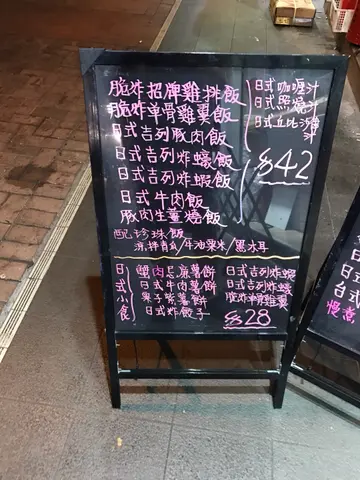 脆炸招牌雞拌飯
脆炸单骨雞裏飯
日式吉列豚肉飯
日式吉列炸蠔飯
日式吉列炸蝦飯
日式牛肉飯
豚肉生薑燒飯
日式咖喱汁
日式照燒汁
日式丘比沙律汁
$42
配珍珠飯
涼拌青瓜/牛油粟米/黑木耳
日式小食
蟹肉芝麻薯餅
日式牛肉薯餅
栗子紫薯餅
日式炸餃子
日式吉列炸蝦
日式吉列炸蠔
脆炸招牌雞
$28
日
台式
台式
慢煮